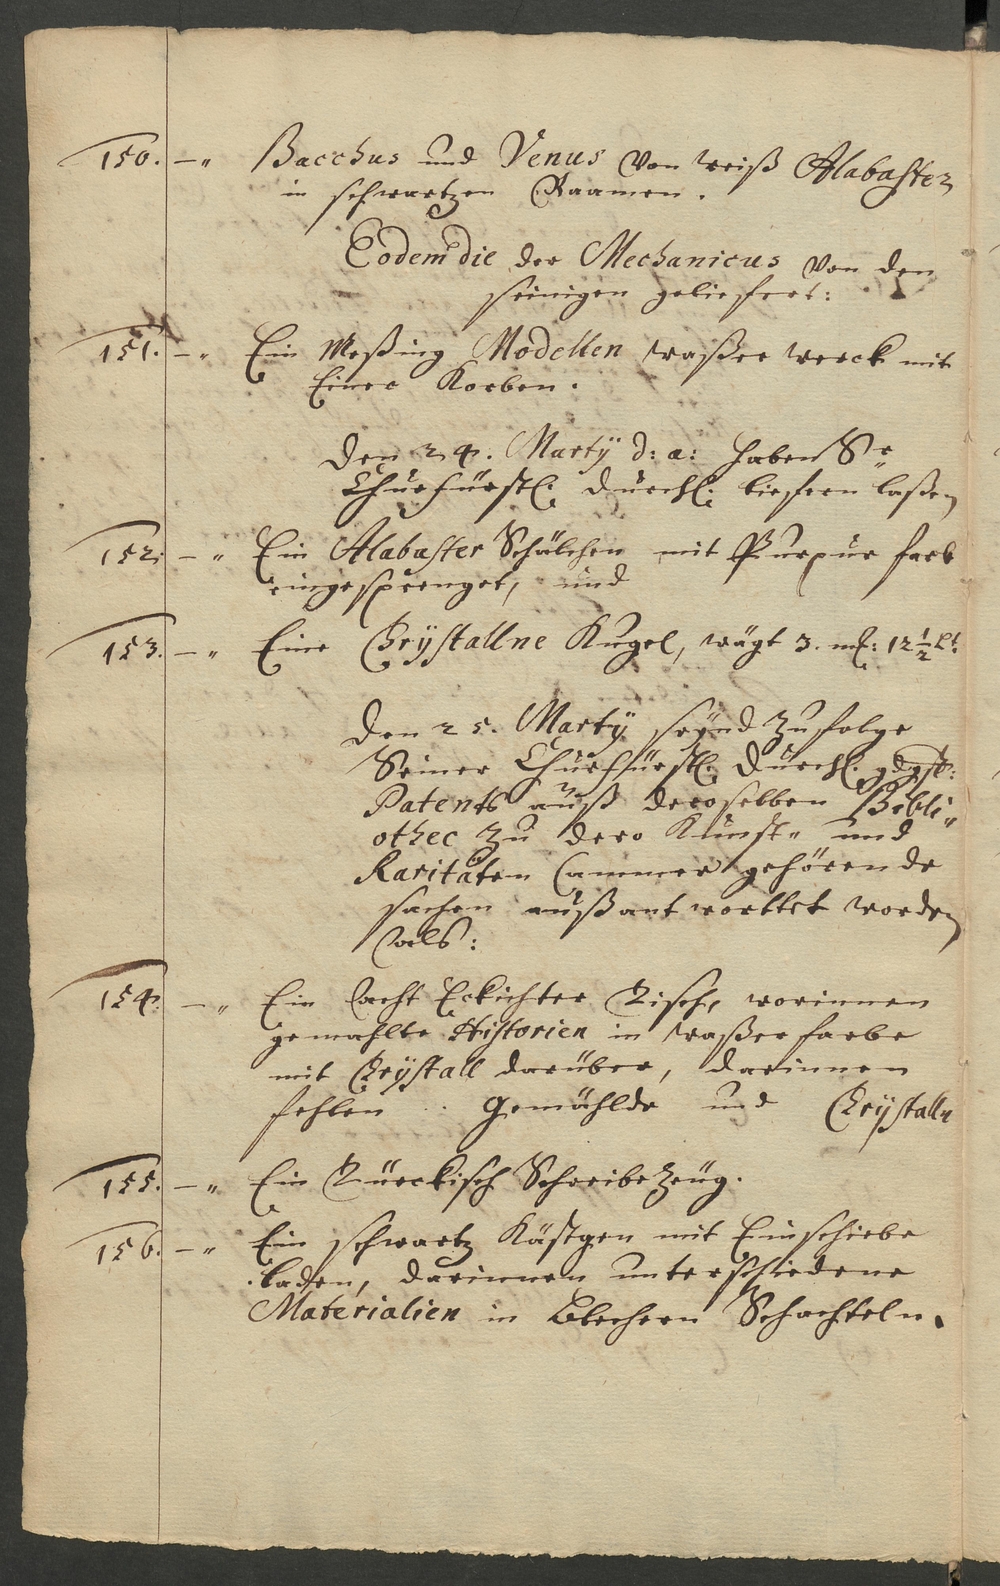 150. –„ Bacchus und Venus von weiß Alabaster
in schwartzen Raamen.
Eodem die der Mechanicus von den
seinigen geliefert:
151. –„ Ein Meßing Modellen waßer werck mit
Einer Korben.
Den 24. Martÿ d: a: haben Sr
Churfürstl: Durchl: liefern laßen
152. –„ Ein Alabaster Schälchen mit Purpur farb
eingesprenget, und
153. –„ Eine Crÿstallne Kugel, wägt 3. mk: 12 1/2 Lt.
Den 25. Martÿ seynd zufolge
Seiner Churfürstl: Durchl: gdgst:
Patents auß deroselben Bibli„
othec zu dero Kunst„ und
Raritäten Cammer gehörende
sachen außantworttet worden
als:
154. –„ Ein acht Eckichter Tisch, worinnen
gemahlte Historien in waßerfarbe
mit Crÿstall darüber, darinnen
fehlen .. Gemählde und Crÿstalle
155. –„ Ein Türckisch Schreibezeug.
156. –„ Ein schwartz Kästgen mit Einschiebe
laden, darinnen unterschiedene
Materialien in Blechern Schachteln.